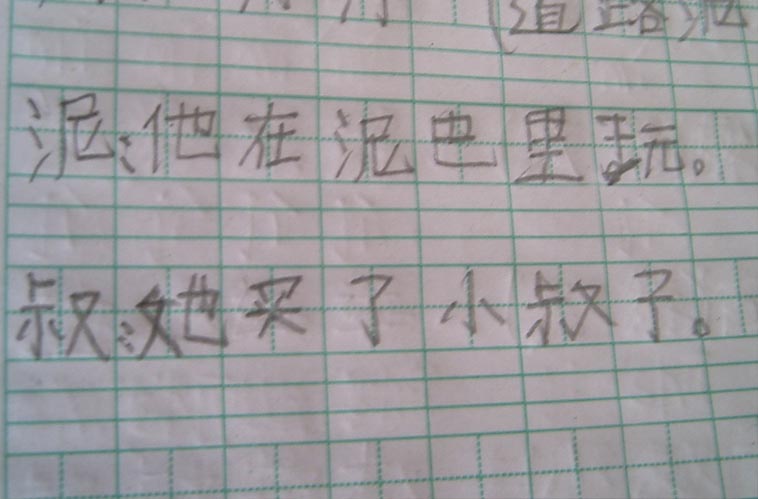 (道路泥
泥:他在泥巴里玩。
叔:她买了小叔子。